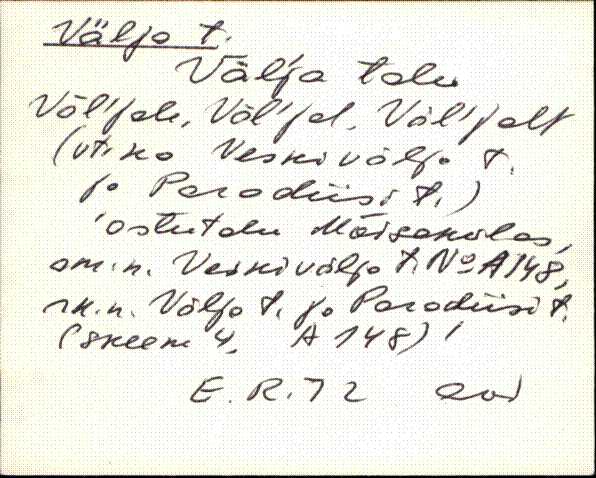 Välja t.
Väl'ja talu
Väl'jale, Väl'jal, Väl'jalt
(vt. ka Veskivälja t.
ja Paradiisi t.)
'ostutalu Mõisakülas,
am. n. Veskivälja t. No A148,
rk. n. Välja t. ja Paradiisi t.
(skeem 4, A 148)'
E. R. 72